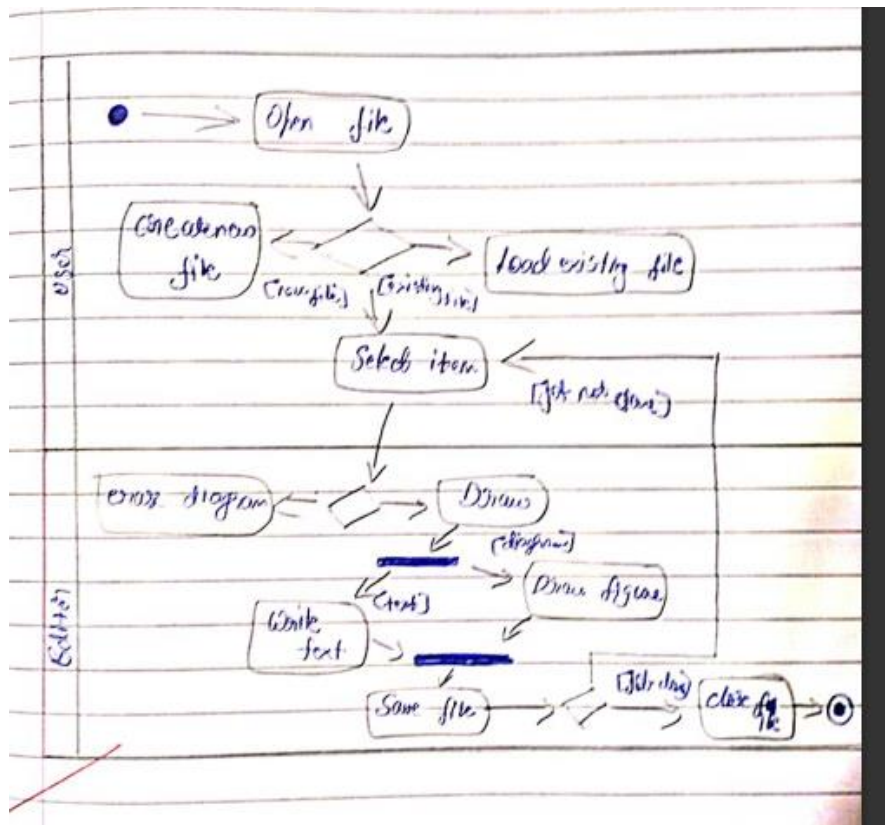 User
Open file
Create new
file
Load existing file
[new file] [existing file]
Select item
[job not done]
Editor
erase diagram
Draw
[diagram]
[text]
Draw figure
Write
text
Save file
[job done]
close
file